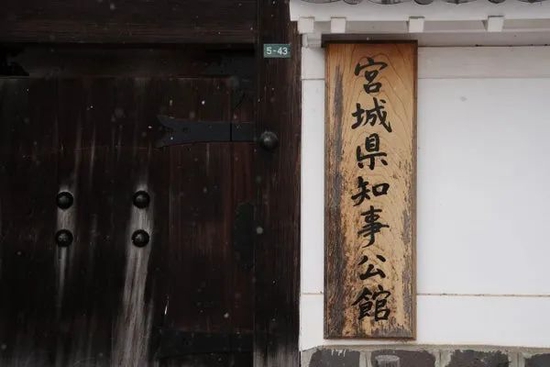 5-43
宮城県知事公館